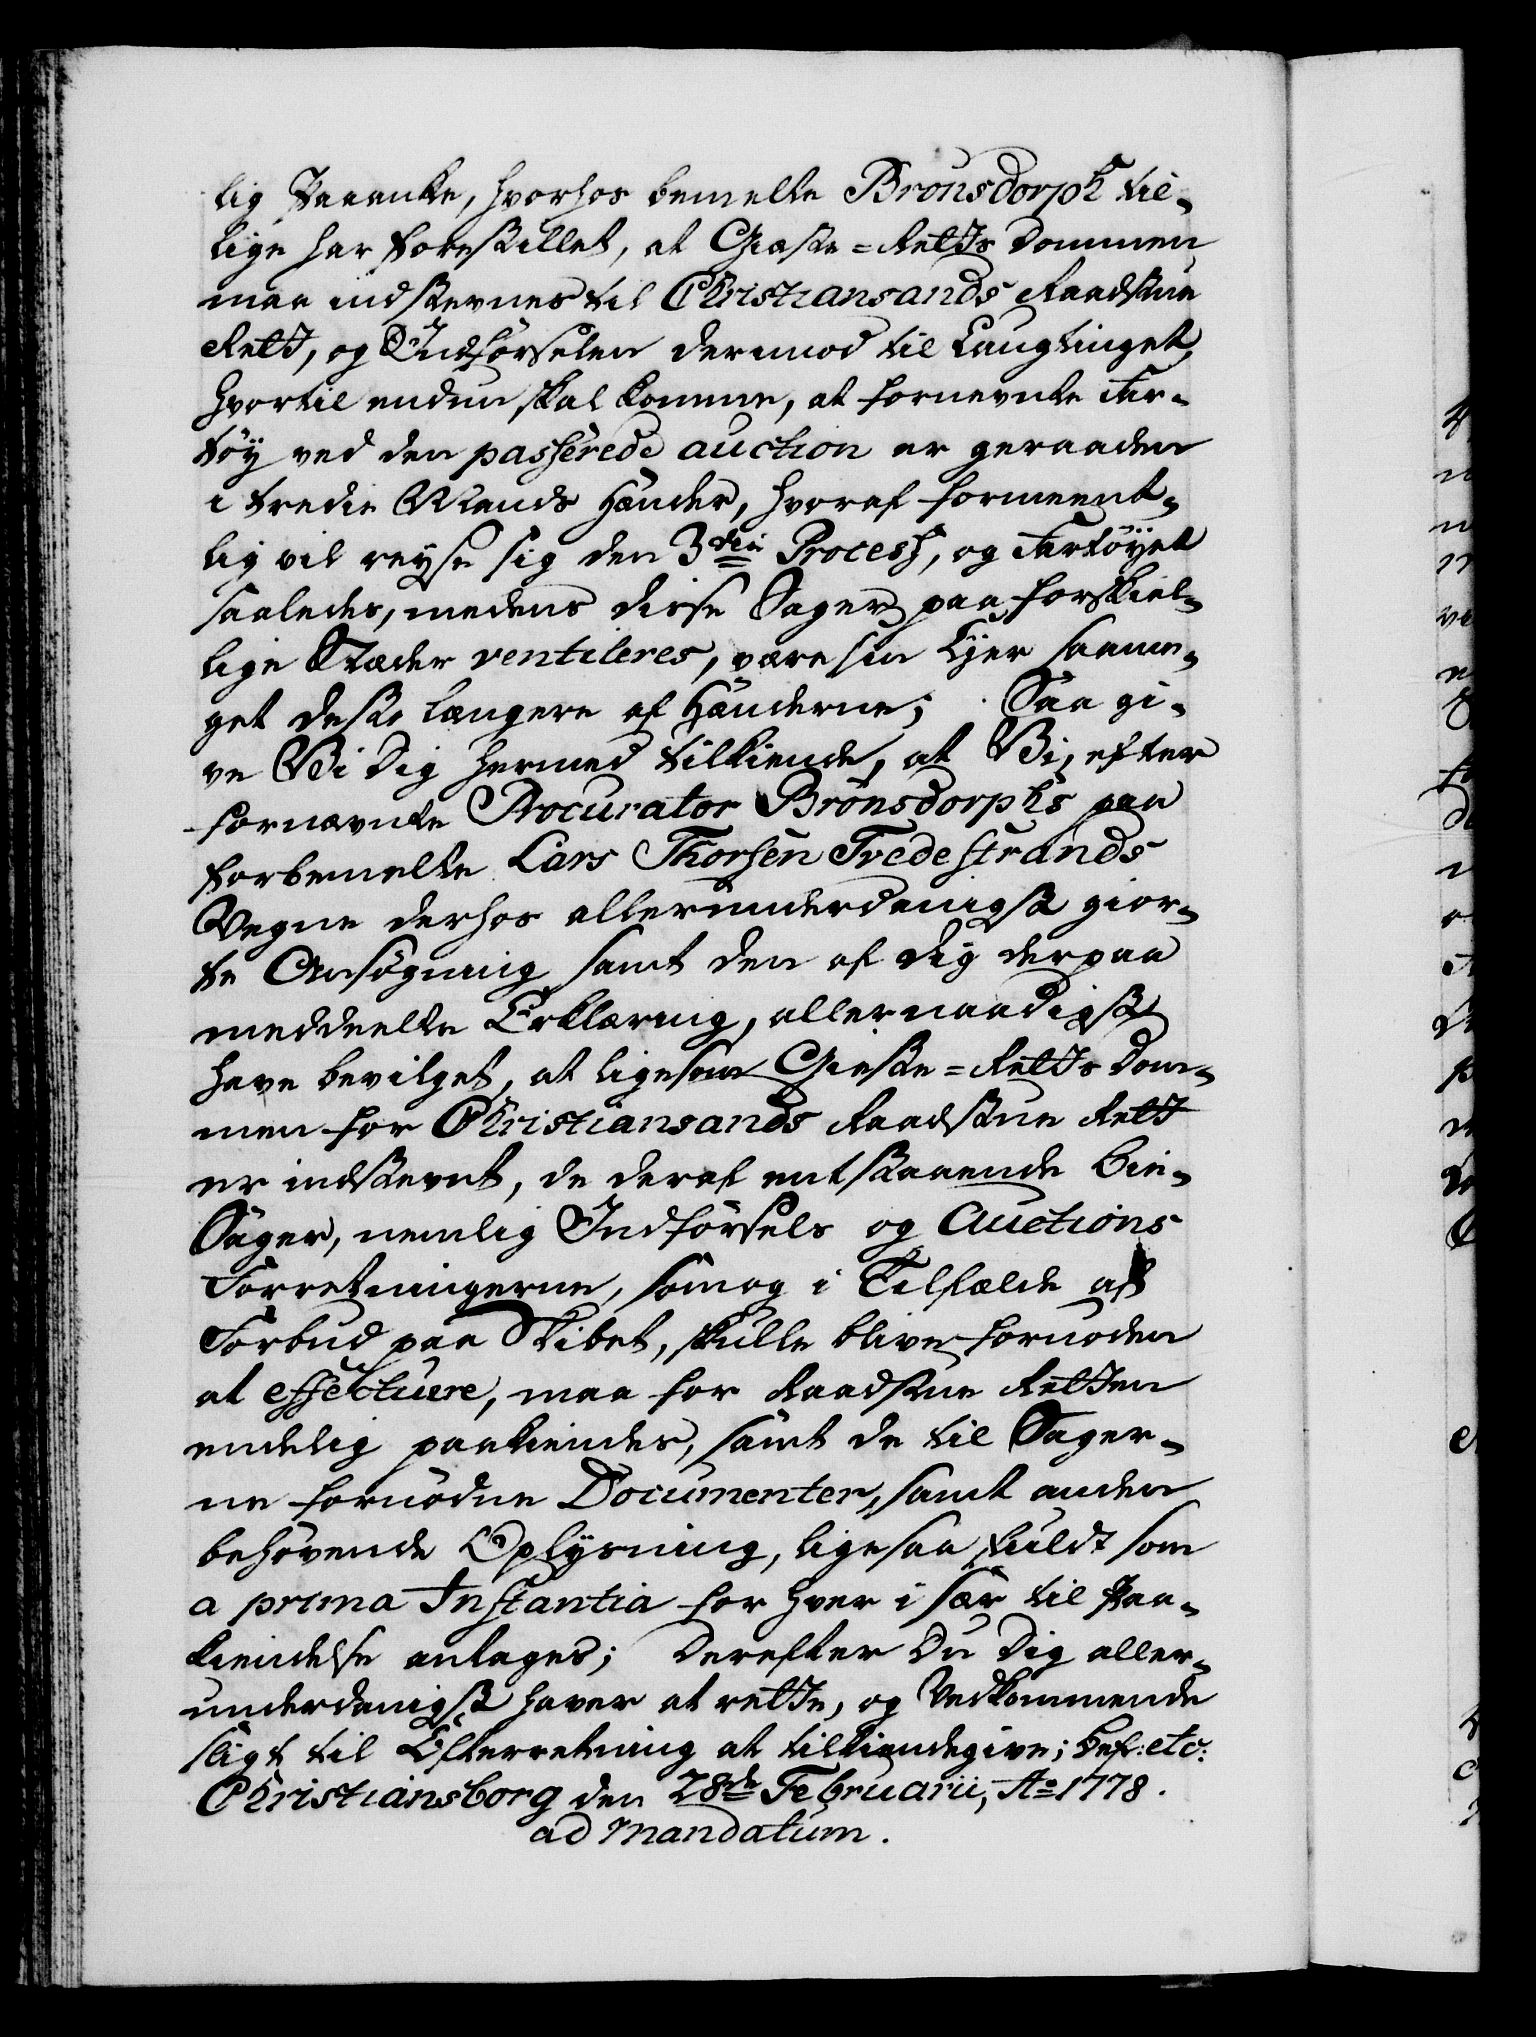 lig Paaanke, hvorhos bemelte Brönsdorph til-
lige har forestillet, at Giæste-Retts Dommen
maa indstevnes til Christiansands Raadstue
Rett, og Indførselen derimod til Laugtinget,
hvortil endnu skal komme, at fornevnte Far-
tøy ved den passerede auction er geraaden
i tredie Mands Hænder, hvoraf formeent-
lig vil reyse sig den 3die Process, og Fartøyet
saaledes, medens disse Sager paa forskiel-
lige Stæder ventileres, være sin Ejer saame-
get desto længere af Hænderne; Saa gi-
ve Vi Dig hermed tilkiende, at Vi, efter
fornævnte Procurator Brönsdorphs paa
forbemelte Lars Thorsen Tvedestrands
Vegne derhos allerunderdanigst gior-
te Ansøgning samt den af dig derpaa
meddeelte Erklæring, allernaadigst
have bevilget, at ligesom Gieste-Retts Dom-
men for Christiansands Raadstue Rett
er indstevnt, de deraf entstaaende bie-
Sager, nemlig Indførsels og Auctions
Forretningerne, som og i Tilfælde af
Forbud paa Skibet, skulle blive fornøden
at effectuere, maa for Raadstue Retten
endelig paakiendes, samt de til Sager-
ne fornødne Documenter, samt anden
behøvende Oplysning, ligesaa fuldt som
a prima Instantia for hver i sær til Paa-
kiendelse antages; Derefter Du Dig aller-
underdanigst haver at rette, og Vedkommende
sligt til Efterretning at tilkiendegive; Bef: etc:
Christiansborg den 28de Februarii, Ao 1778.
ad Mandatum.